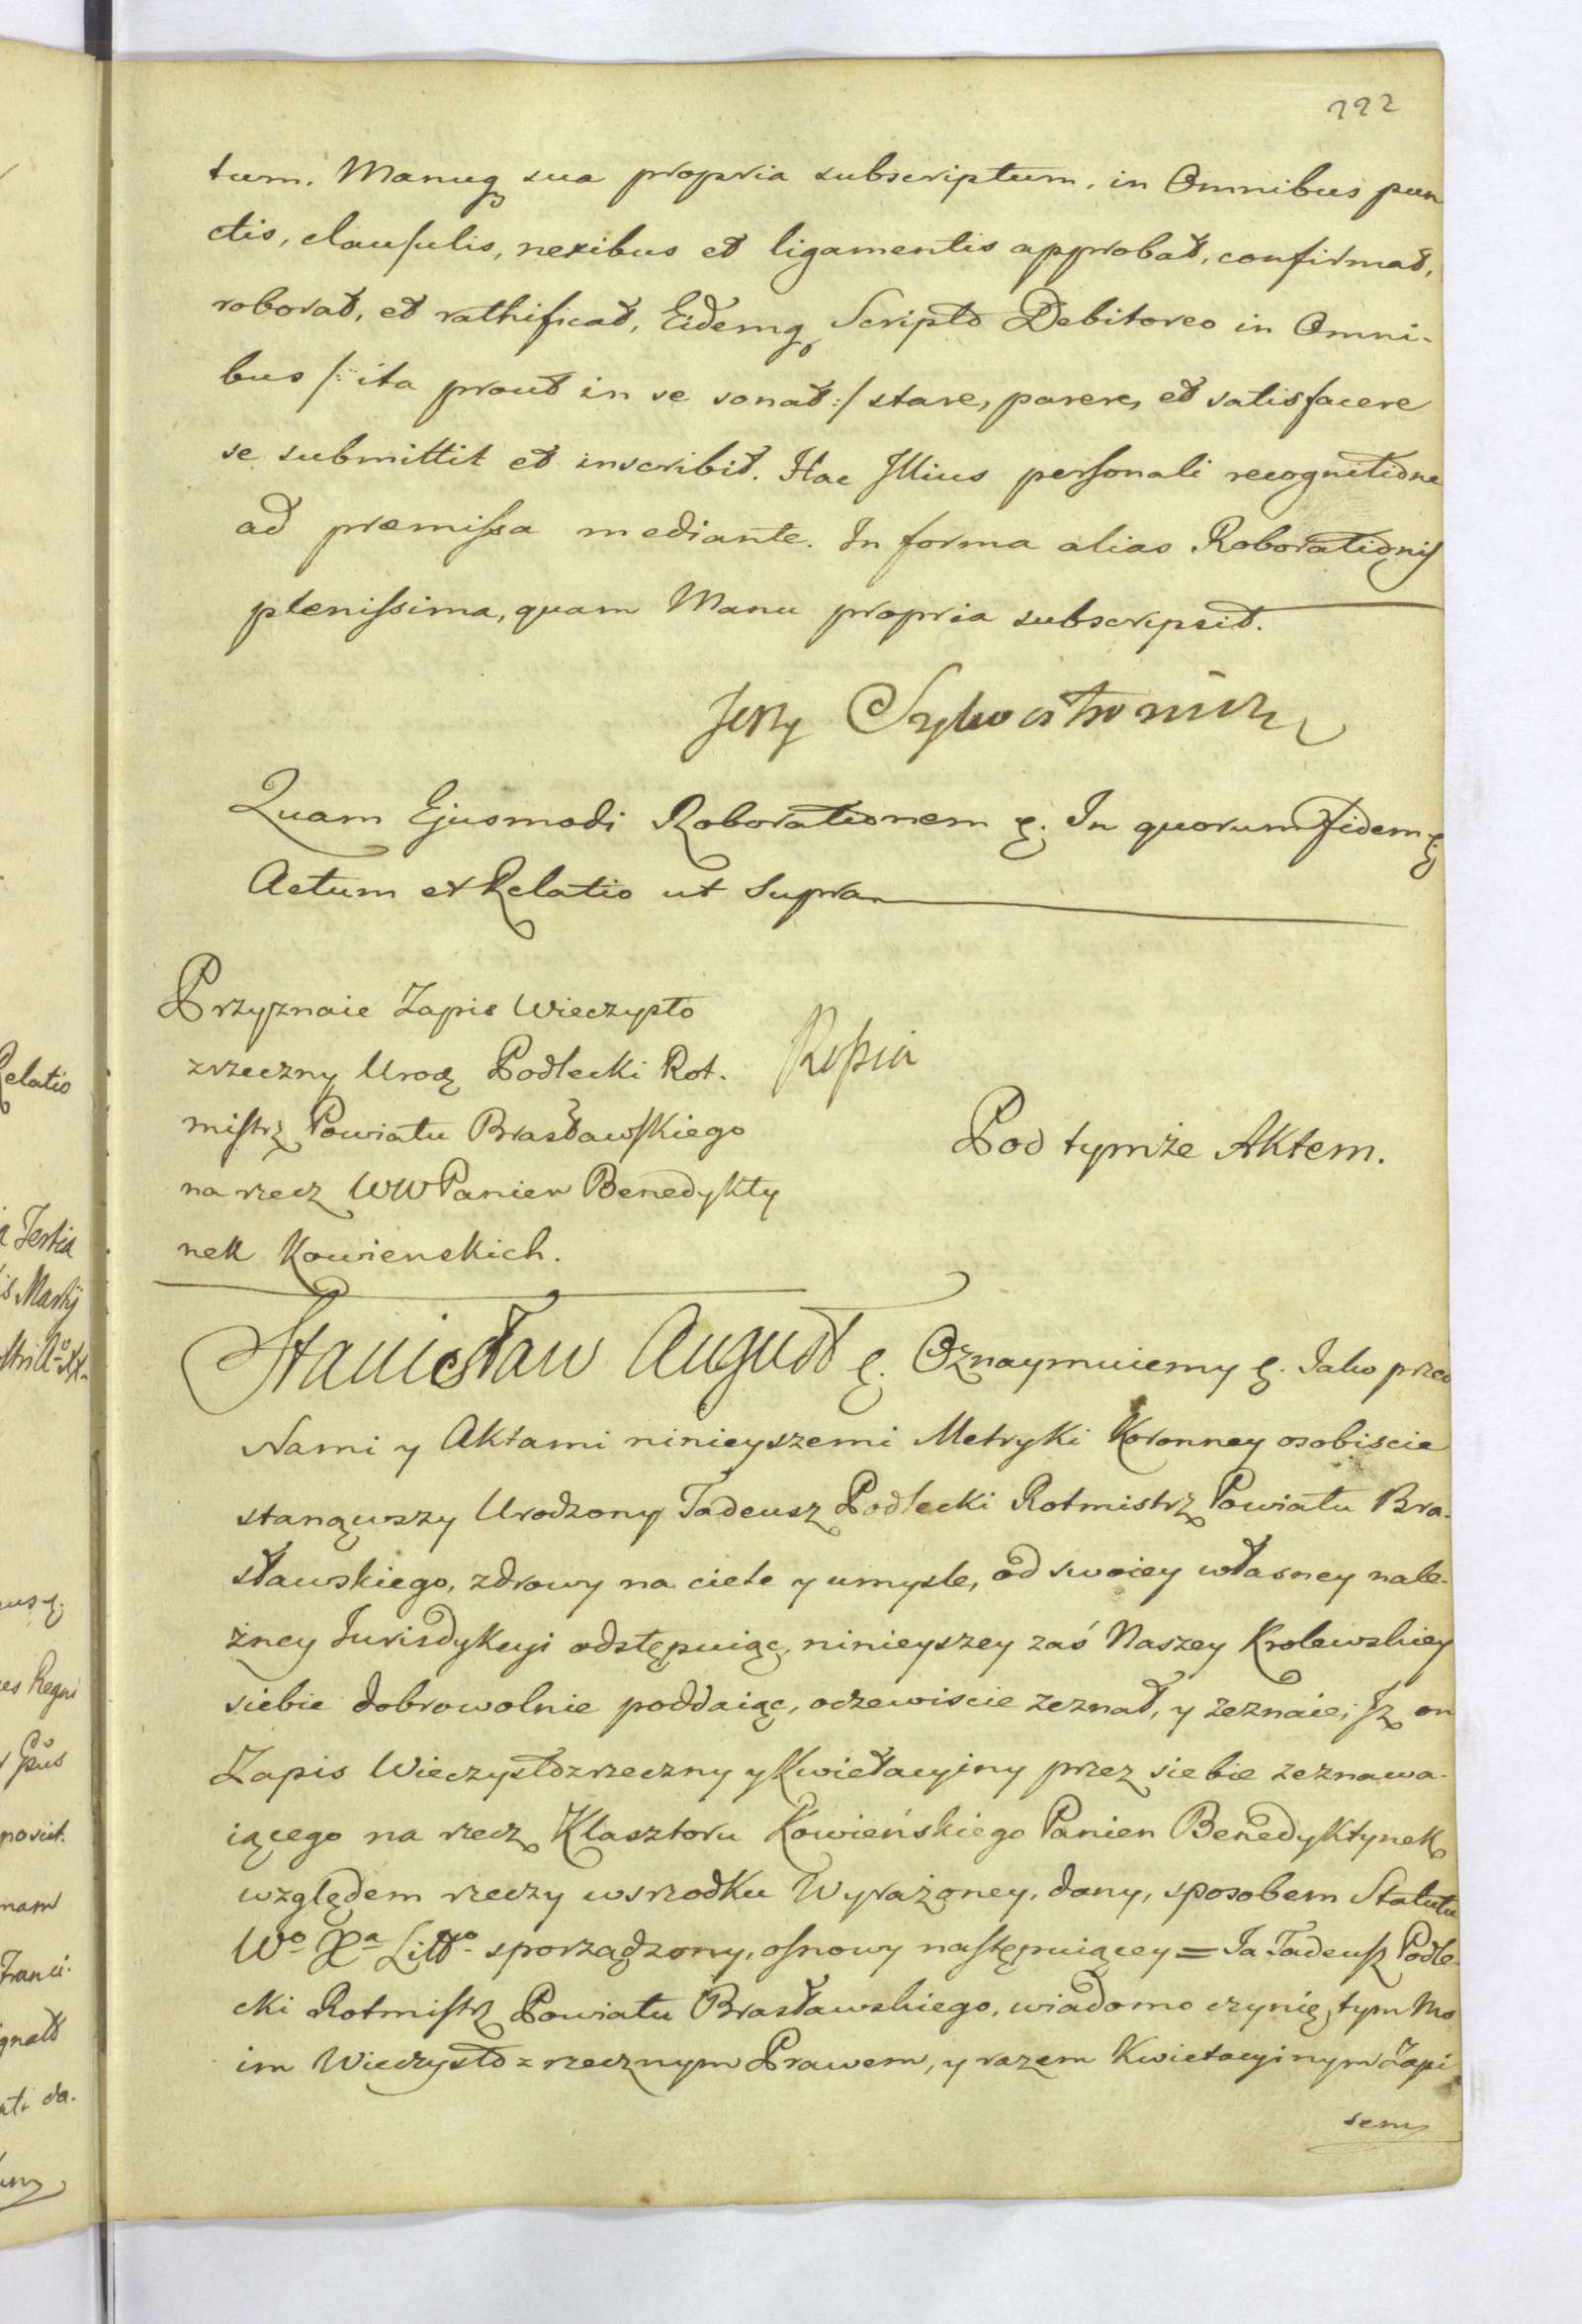 122
tum. Manuq̨ sua propria subscriptum, in Omnibus pun
ctis, clausulis, nexibus et ligamentis approbat, confirmat,
roborat, et rathificat, Eidemq̨ Scripto Debitoreo in Omni-
bus /: ita prout in se sonat :/ stare, parere, et satisfacere
se submittit et inscribit. Hac Illius personali recognitione
ad præmissa mediante. In forma alias Roborationis
plenissima, quam Manu propria subscripsit.
Jerzy
Quam Ejusmodi Roborationem &. In quorum Fidem &
Actum et Relatio ut Supra
Przyznaie Zapis Wieczysto
zrzeczny Urodz Podlecki Rot.
mistrz Powiatu Brasławskiego
na rzecz WW Panien Benedykty
nek Kowienskich.
Kopia
Pod tymże Aktem.
Stanisław August &. Oznaymuiemy &. Iako przed
Nami y Aktami ninieyszemi Metryki Koronney osobiscie
stanąwszy Urodzony Tadeusz Podlecki Rotmistrz Powiatu Bra-
sławskiego, zdrowy na ciele y umysle, od swoiey własney nale-
żney Iurisdykcyi odstępuiąc, ninieyszey zaś Naszey Krolewskiey
siebie dobrowolnie poddaiąc, oczewiscie zeznał, y zeznaie, Jż on
Zapis Wieczystozrzeczny y Kwietacyiny przez siebie zeznawa-
iącego na rzecz Klasztoru Kowieńskiego Panien Benedyktynek
względem rzeczy wsrzodku Wyrażoney, dany, sposobem Statutu
Wo Xa Littgo sporządzony, osnowy następuiącey = Ia Tadeusz Podle-
cki Rotmistrz Powiatu Brasławskiego, wiadomo czynię, tym Mo
im Wieczysto zrzecznym Prawem, y razem Kwietacyinym Zapi
sem